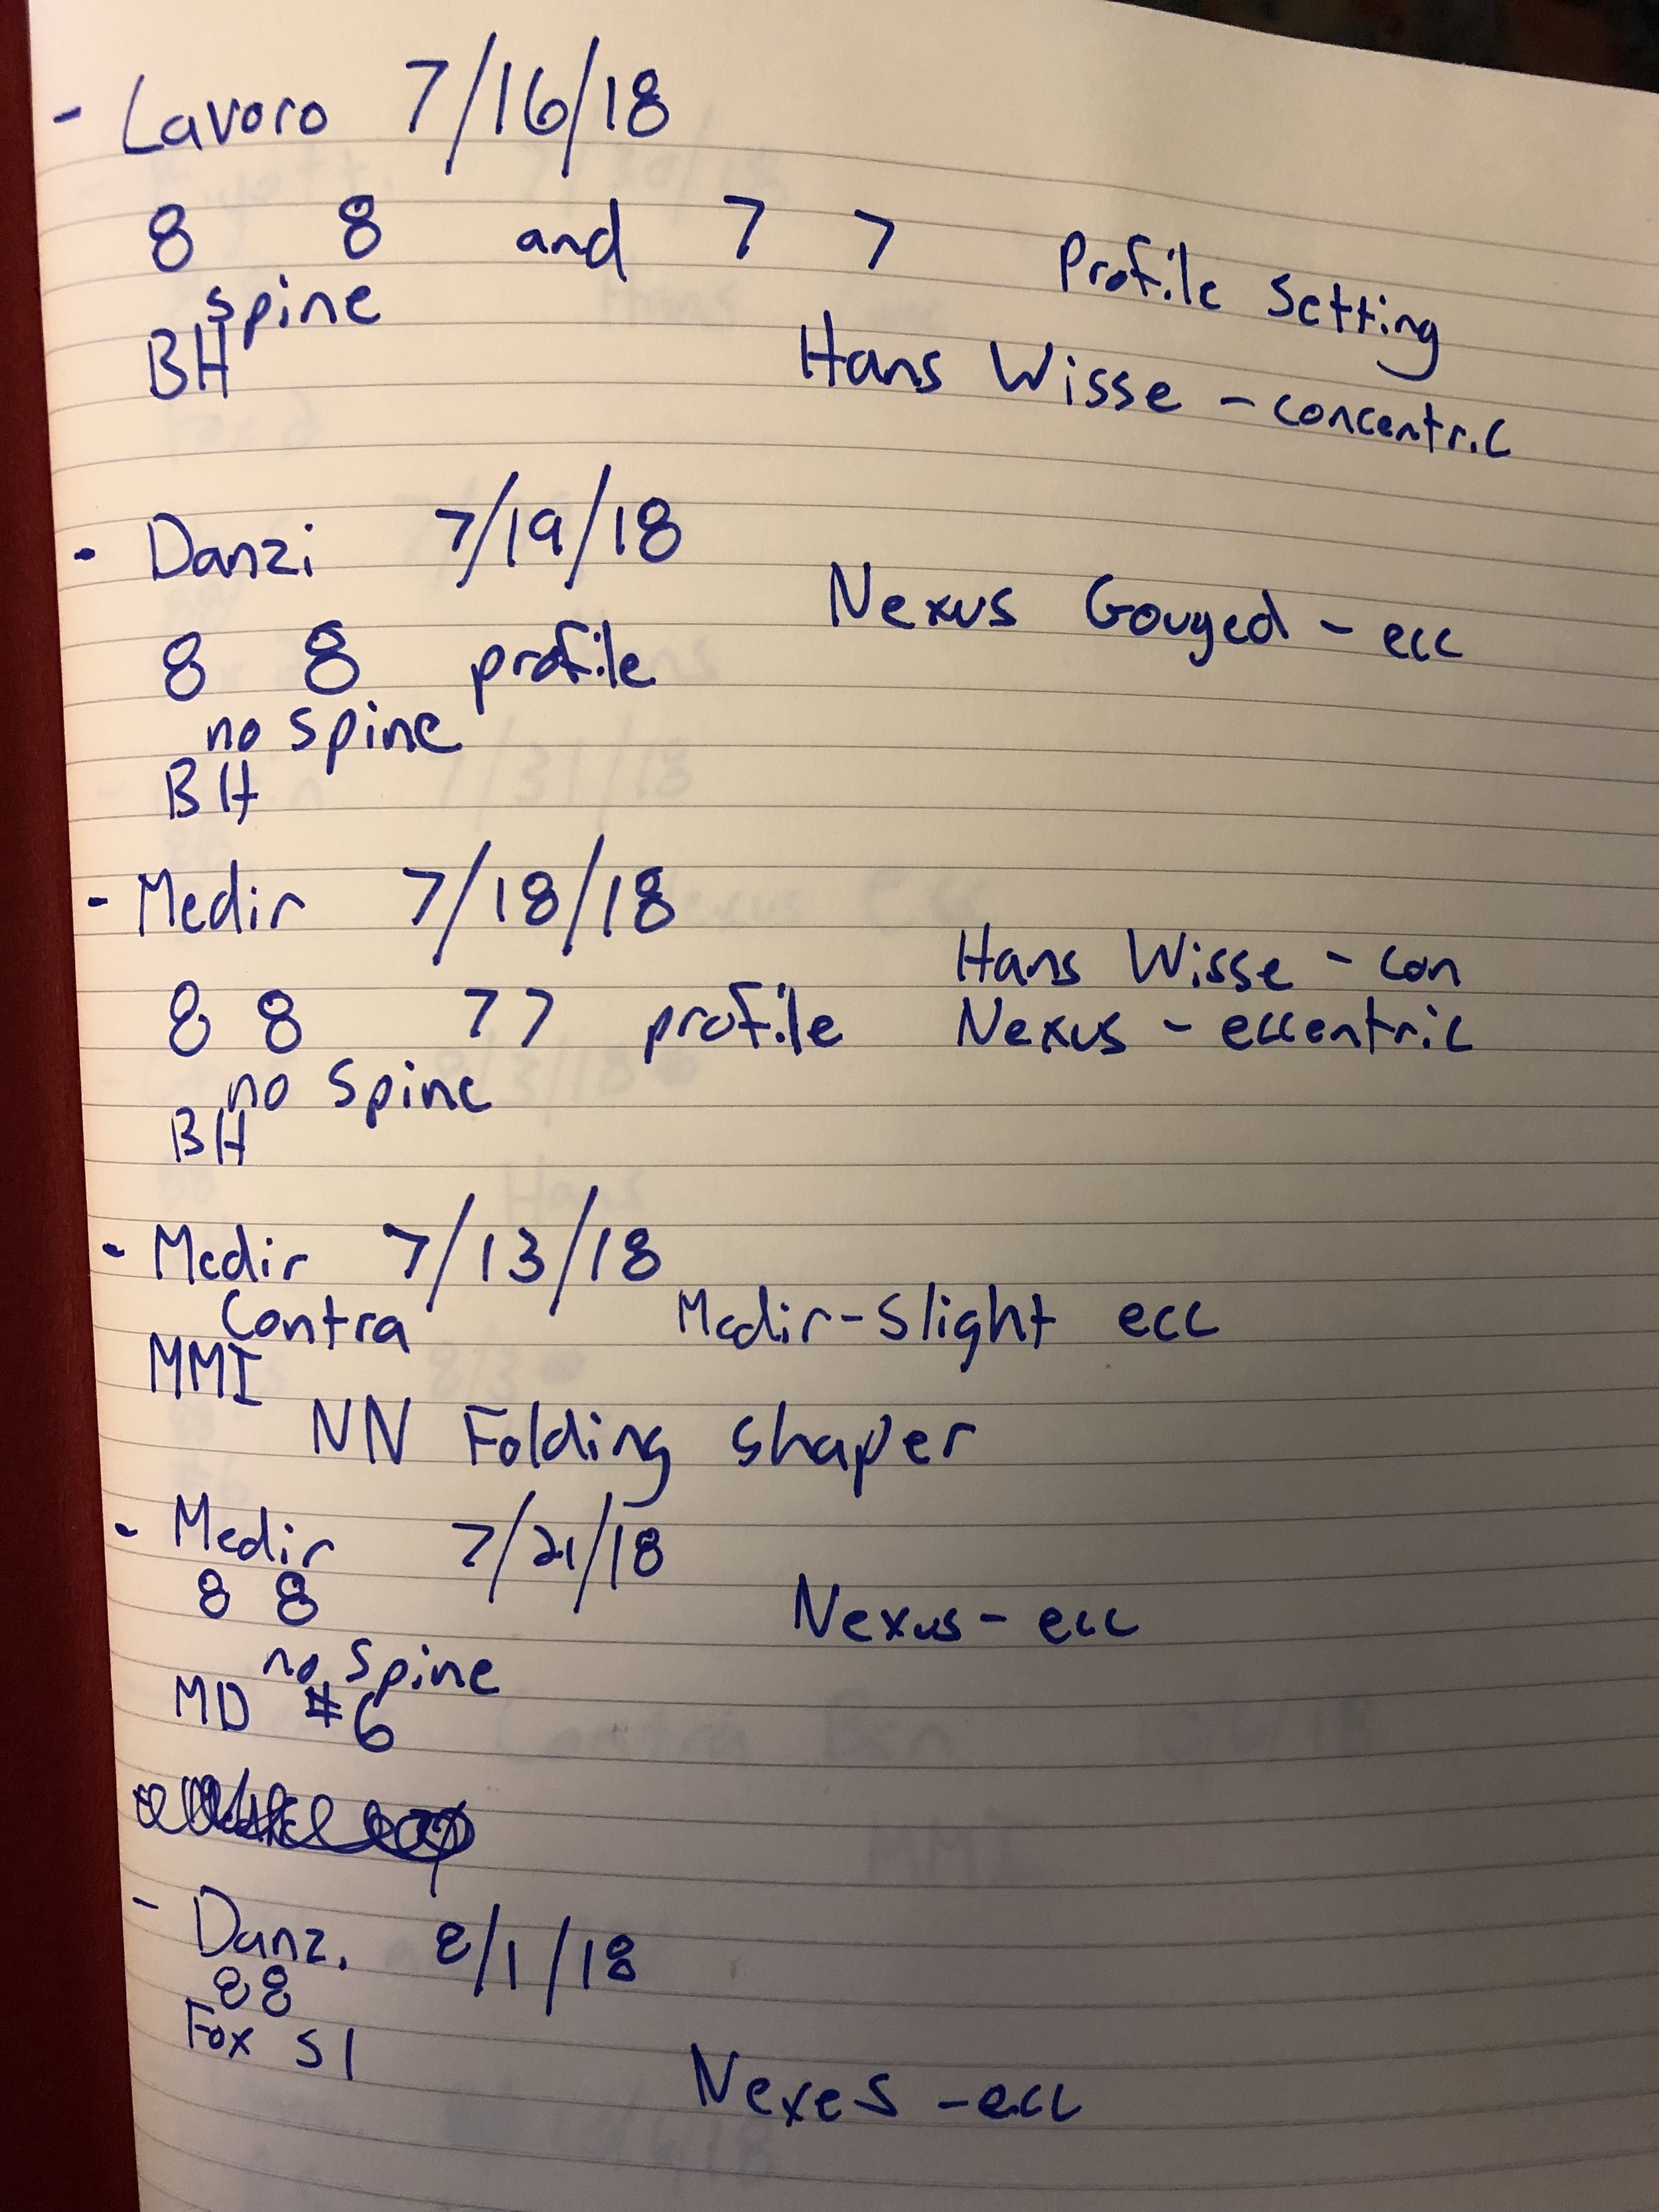 - Lavoro 7/16/18
8 8 and 7 7 Profile Setting
spine
BH Hans Wisse - concentric
- Danzi 7/19/18
Nexus Gouged - ecc
8 8 profile
no spine
BH
- Medir 7/18/18
Hans Wisse - con
8 8 7 7 profile Nexus - eccentric
no spine
BH
- Medir 7/13/18
Contra Medir-Slight ecc
MMI
NN Folding shaper
- Medir 7/21/18
8 8 Nexus - ecc
no spine
MD #6
- Danzi 8/1/18
88
Fox S1
Nexes - ecc